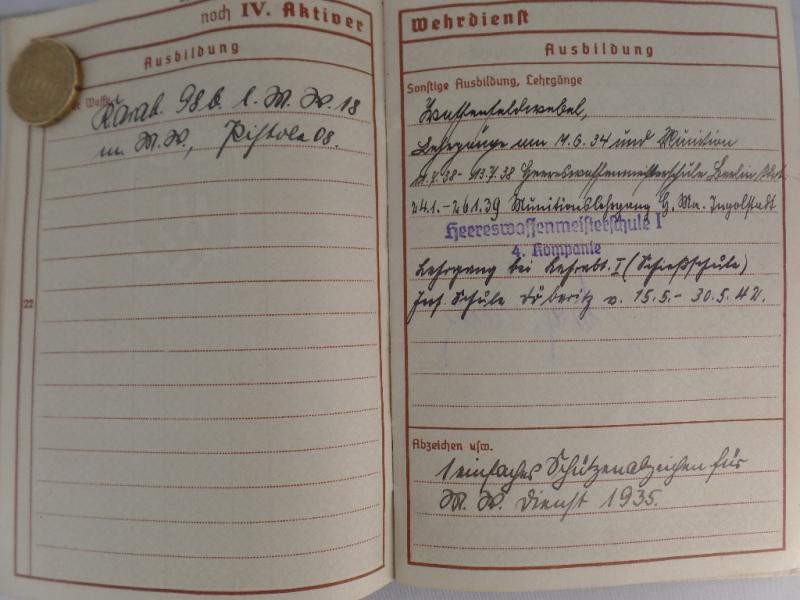 noch IV. Aktiver
Ausbildung
Waffe
Karab. 98 b. l. M. W. 18
m. M. W., Pistole 08.
22
Wehrdienst
Ausbildung
Sonstige Ausbildung, Lehrgänge
Waffenfeldwebel,
Lehrgänge am 1.6.34 und Munition
.7.38- 13.7.38 Heereswaffenmeisterschule Berlin
24.1.-26.1.39 Munitionslehrgang H. Ma. Ingolstadt
Heereswaffenmeisterschule I
4. Kompanie
Lehrgang bei Lehrabt. I (Schießschule)
Inf. Schule Döberitz v. 15.5.- 30.5.42.
Abzeichen usw.
1 einfaches Schützenabzeichen für
M. W. Dienst 1935.